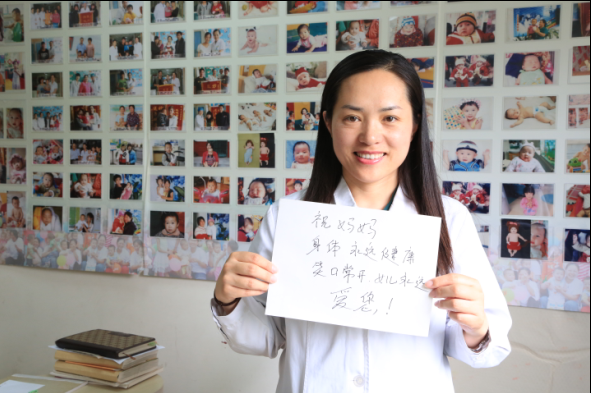 祝妈妈
身体永远健康
笑口常开 女儿永远
爱您!